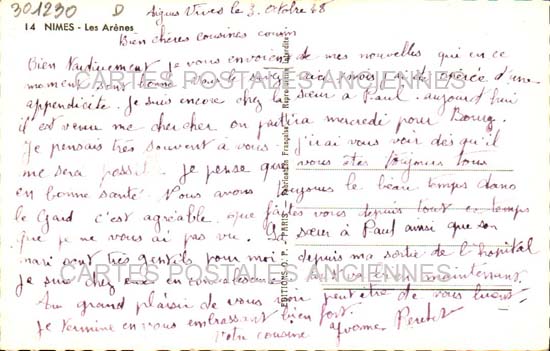 301230 D Aigues Vives le 3. Octobre 68
14 NIMES - Les Arènes
Bien chères cousines cousin
Bien tardivement je vous envoie de mes nouvelles qui en ce
moment sont bonne vous le savez opérée d'une
appendicite. Je suis encore chez la sœur à Paul. aujourd'hui
il est venu me chercher on partira mercredi pour Bourg.
Je pensais très souvent à vous. j'irai vous voir dès qu'il
me sera possible. je pense que vous êtes toujours tous
en bonne santé. Nous avons toujours le beau temps dans
le Gard c'est agréable. que faites vous depuis tout ce temps
que je ne vous ai pas vu. La sœur à Paul ainsi que son
mari sont très gentils pour moi depuis ma sortie de l'hopital
je suis chez eux en convalescence maintenant.
Au grand plaisir de vous voir peut être de vous
je termine en vous embrassant bien fort.
votre cousine Yvonne Penter
CARTES POSTALES ANCIENNES
CARTES POSTALES ANCIENNES
EDITIONS O. P. - PARIS Fabrication Française Reproduction Interdite